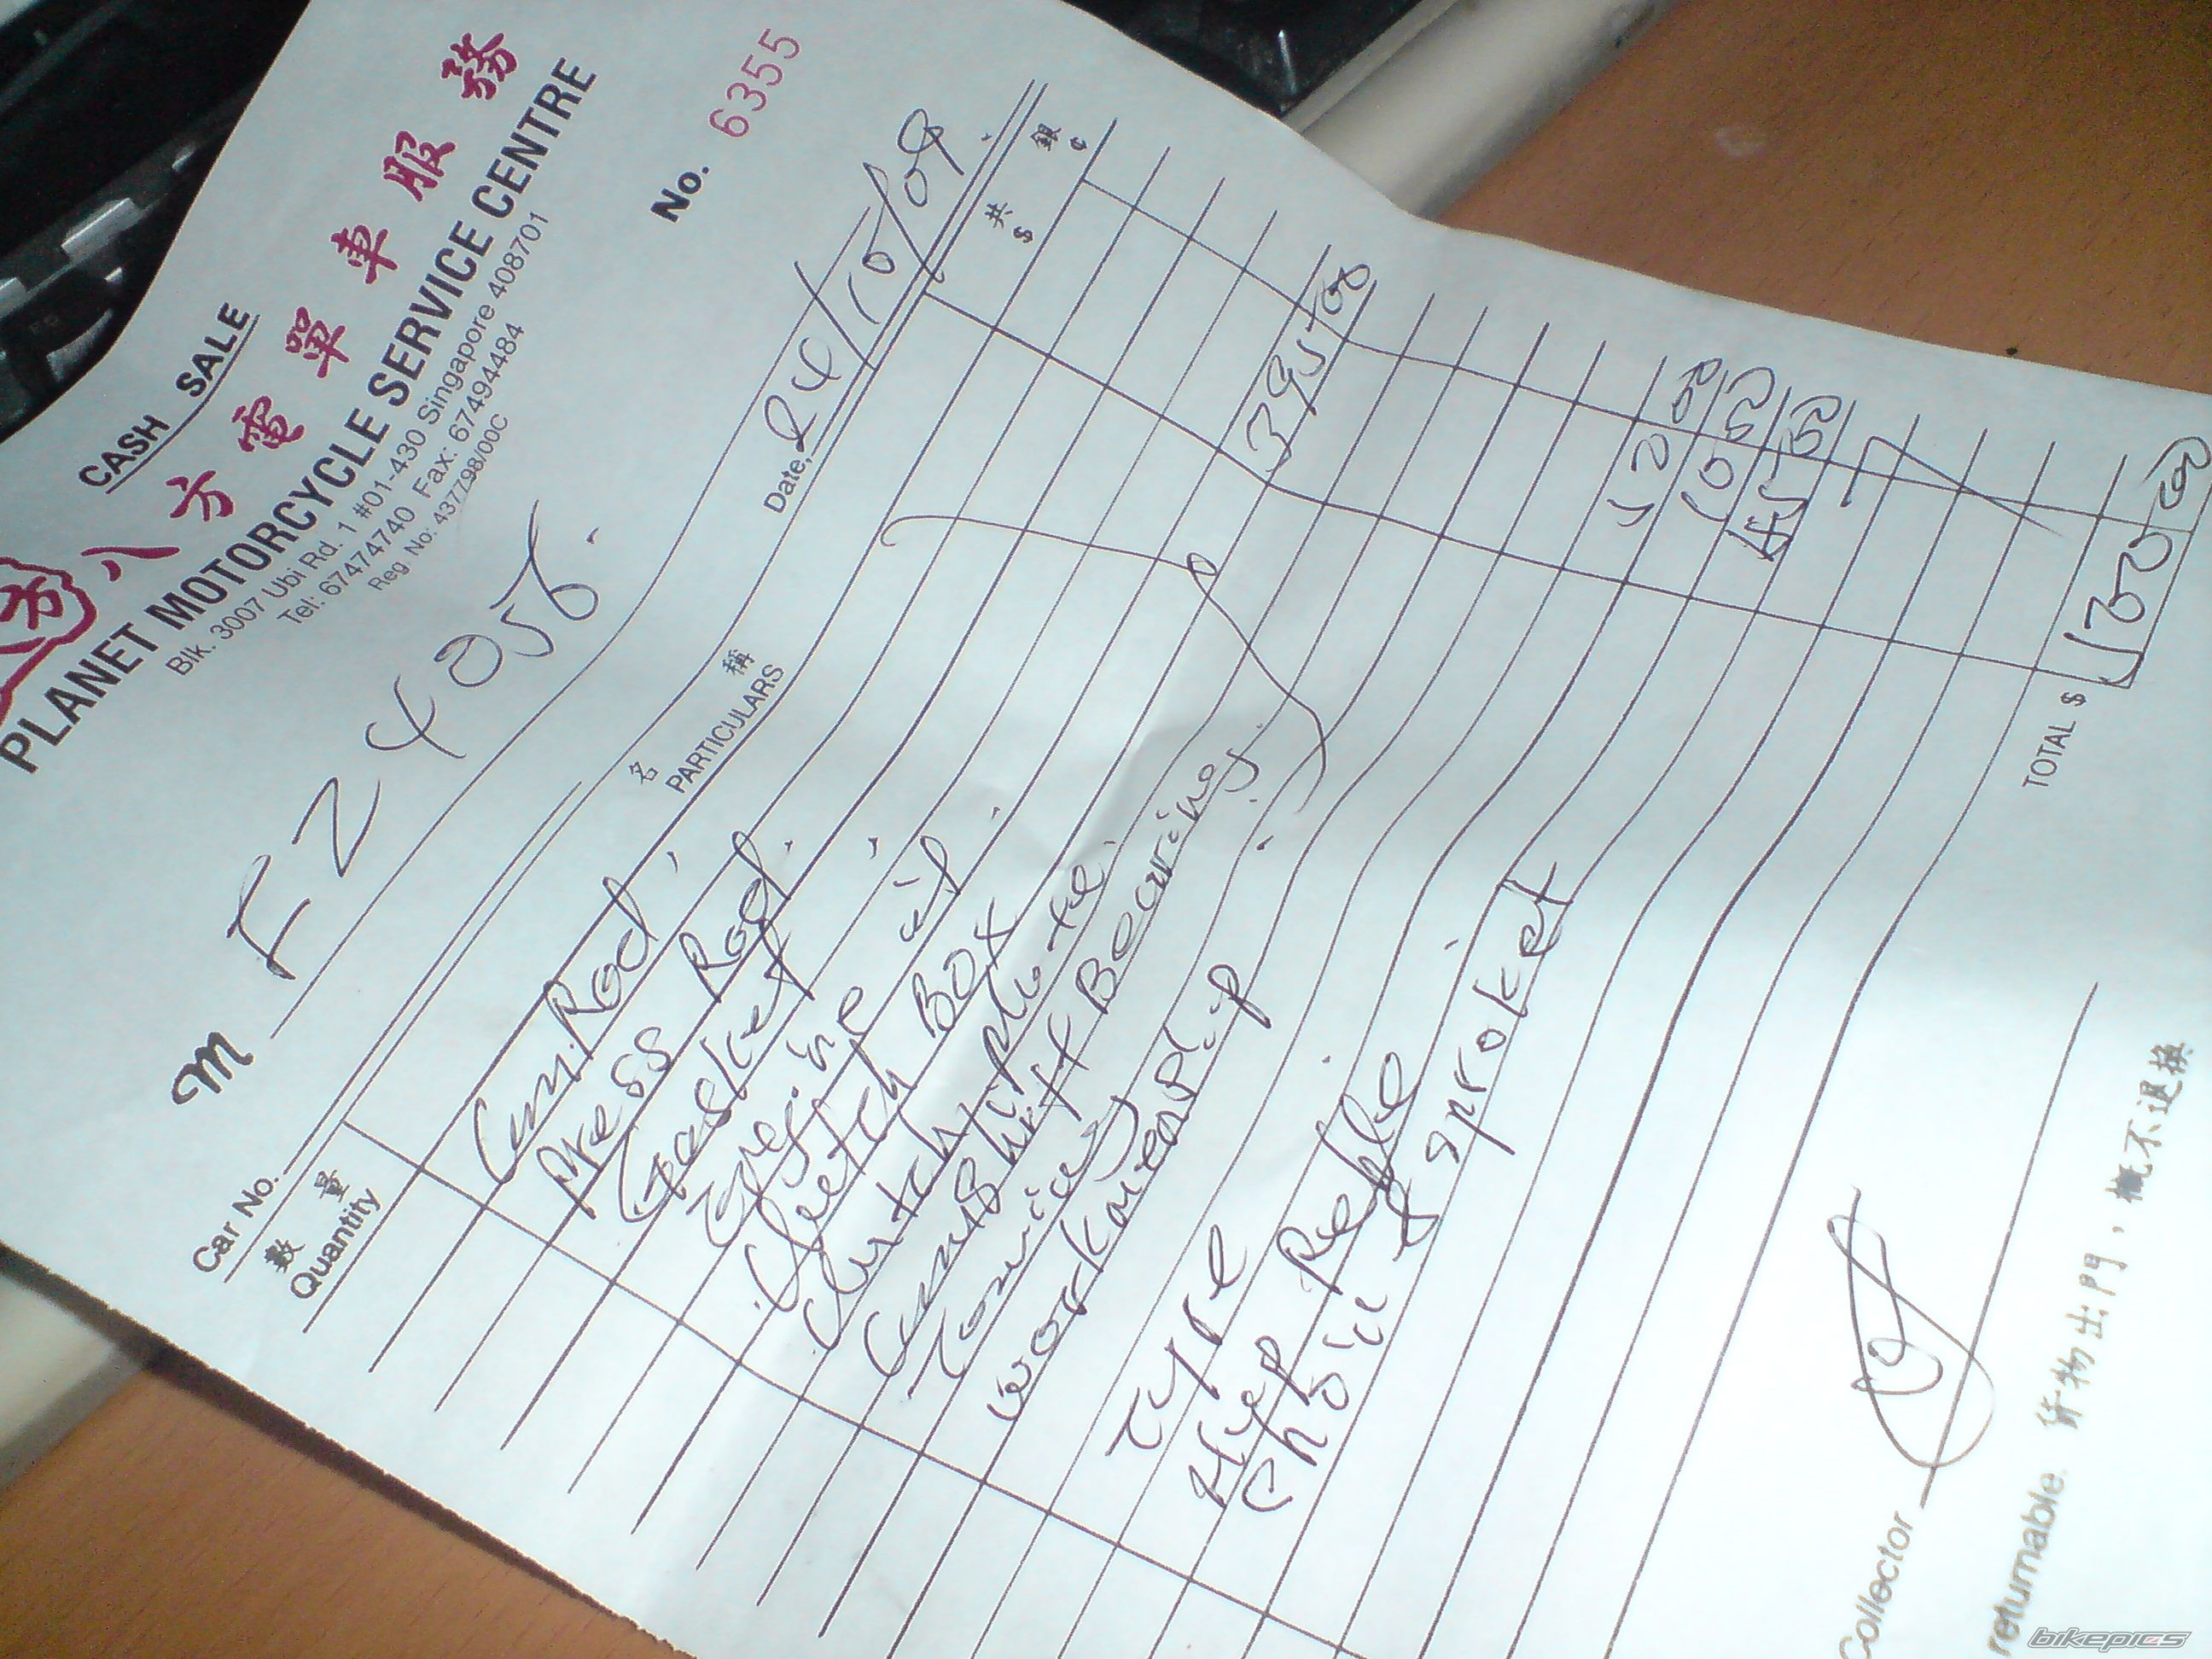 CASH SALE
八方電單車服務
PLANET MOTORCYCLE SERVICE CENTRE
Blk. 3007 Ubi Rd. 1 #01-430 Singapore 408701
Tel: 67474740 Fax: 67494484
Reg No: 437798/00C
No. 6355
M FZ 4058.
Car No. Date, 24/10/09
數量 名稱 共銀
Quantity PARTICULARS $ ¢
Cam Rod,
Press Rod.
Gasket
Engine oil.
Clutch Box
Clutch plate, 395 00
Camshift Bearing.
workmenship.
Tyre 120 00
Chain & sproket
TOTAL $
Collector
returnable. 貨物出門，概不退換
bikepics